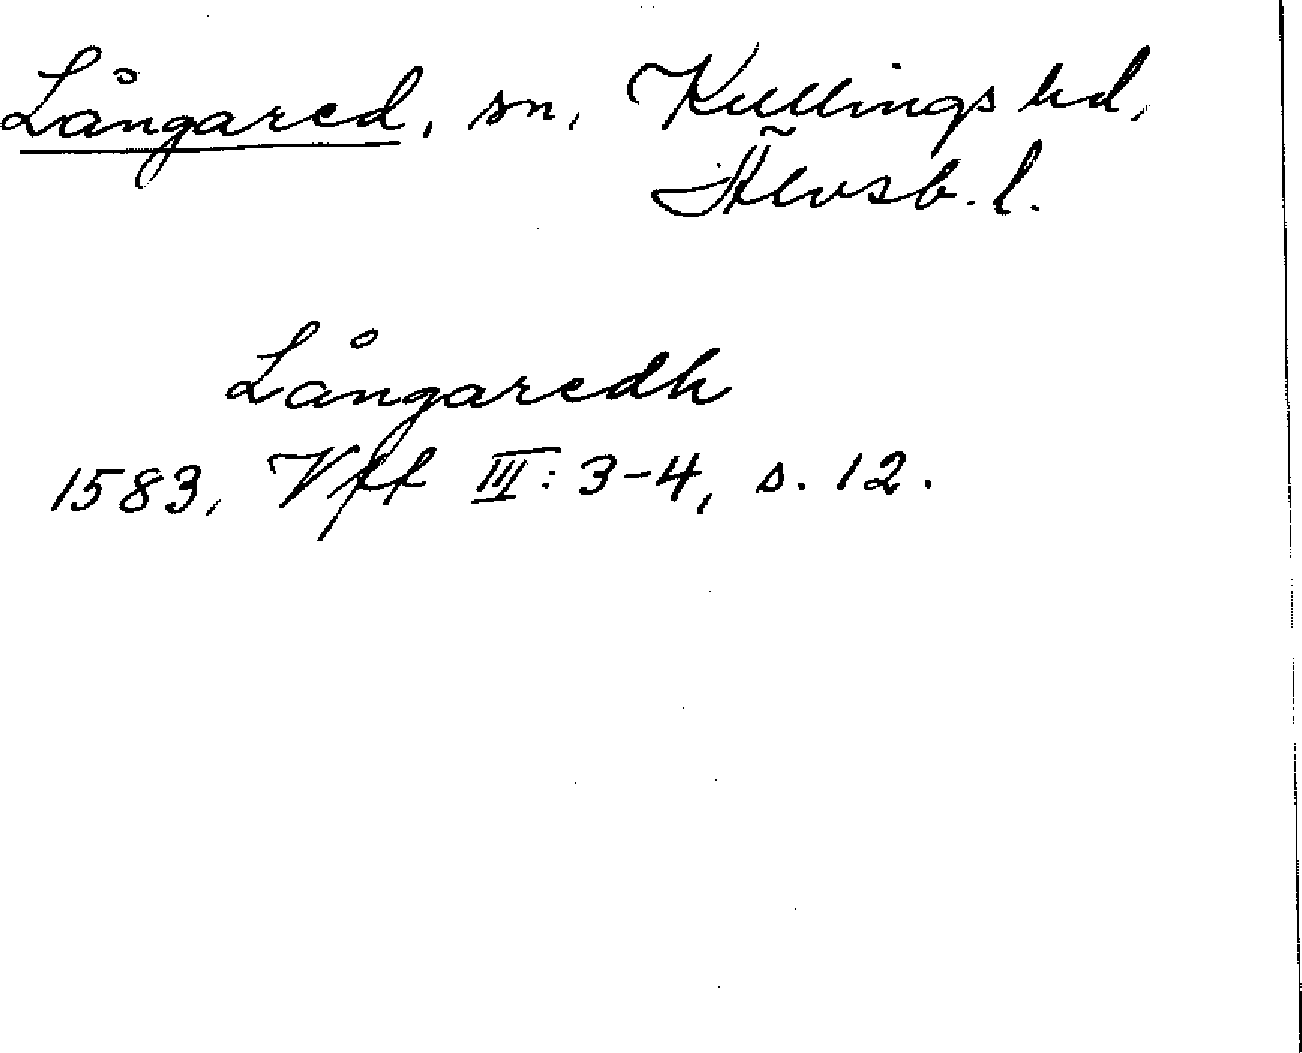 Långared, sn, Kullings hd,
Älvsb. l.
Långaredh
1583, Vft III: 3-4, s. 12.